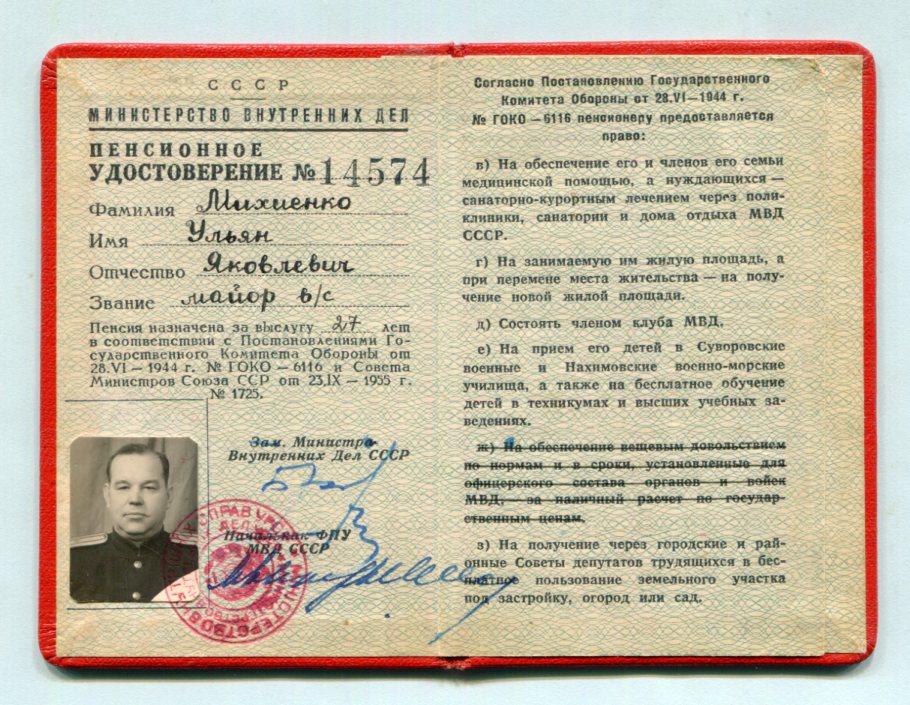 СССР
МИНИСТЕРСТВО ВНУТРЕННИХ ДЕЛ
ПЕНСИОННОЕ
УДОСТОВЕРЕНИЕ № 14574
Фамилия Михиенко
Имя Ульян
Отчество Яковлевич
Звание майор в/с
Пенсия назначена за выслугу 27 лет
в соответствии с Постановлениями Го-
сударственного Комитета Обороны от
28.VI — 1944 г. № ГОКО — 6116 и Совета
Министров Союза ССР от 23.IX — 1955 г.
№ 1725.
Зам. Министра
Внутренних Дел СССР
Начальник ФПУ
МВД СССР
Согласно Постановлению Государственного
Комитета Обороны от 28.VI—1944 г.
№ ГОКО —6116 пенсионеру предоставляется
право:
в) На обеспечение его и членов его семьи
медицинской помощью, а нуждающихся —
санаторно-курортным лечением через поли-
клиники, санатории и дома отдыха МВД
СССР.
г) На занимаемую им жилую площадь, а
при перемене места жительства — на полу-
чение новой жилой площади.
д) Состоять членом клуба МВД.
е) На прием его детей в Суворовские
военные и Нахимовские военно-морские
училища, а также на бесплатное обучение
детей в техникумах и высших учебных за-
ведениях.
ж) На обеспечение вещевым довольствием
по нормам и в сроки, установленные для
офицерского состава органов и войск
МВД, — за наличный расчет по государ-
ственным ценам.
з) На получение через городские и рай-
онные Советы депутатов трудящихся в бес-
платное пользование земельного участка
под застройку, огород или сад.